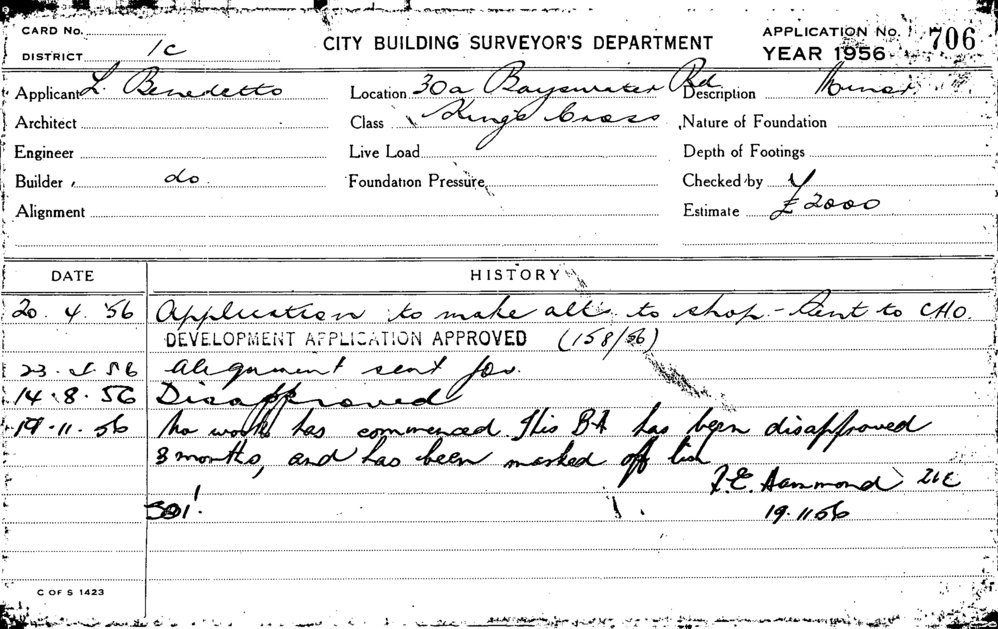 CARD No.
DISTRICT 1C
CITY BUILDING SURVEYOR'S DEPARTMENT
APPLICATION No. 706
YEAR 1956
Applicant L. Benedetto Location 30a Bayswater Rd Description Minor
Architect Class Kings Cross Nature of Foundation
Engineer Live Load Depth of Footings
Builder do. Foundation Pressure Checked by
Alignment Estimate £2000
DATE HISTORY
20. 4. 56 Application to make alts to shop - Sent to CHO.
DEVELOPMENT APPLICATION APPROVED (158/56)
23. 56 Alignment sent for.
14. 8. 56 Disapproved
19. 11. 56 No work has commenced This BA has been disapproved
3 months, and has been marked off list
F.E. Hammond
19. 11 56
C OF S 1423